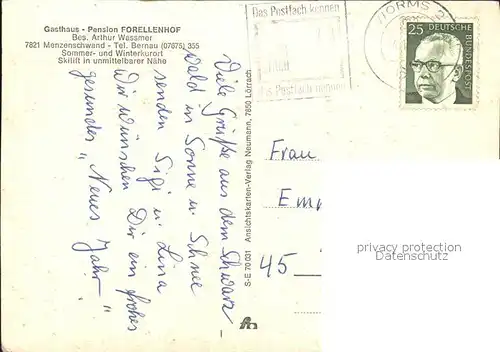 Gasthaus - Pension FORELLENHOF
Bes. Arthur Wassmer
7821 Menzenschwand - Tel. Bernau (07675) 355
Sommer- und Winterkurort
Skilift in unmittelbarer Nähe
Viele Grüße aus dem Schwarz
wald in Sonne u. Schnee
senden Sigi u. Lina
Wir wünschen Dir ein frohes
gesundes „Neues Jahr"
S-E 70 031 Ansichtskarten-Verlag Neumann, 7850 Lörrach
Das Postfach kennen
das Postfach nennen
WORMS 2
25 DEUTSCHE BUNDESPOST
Frau
45
privacy protection
Datenschutz